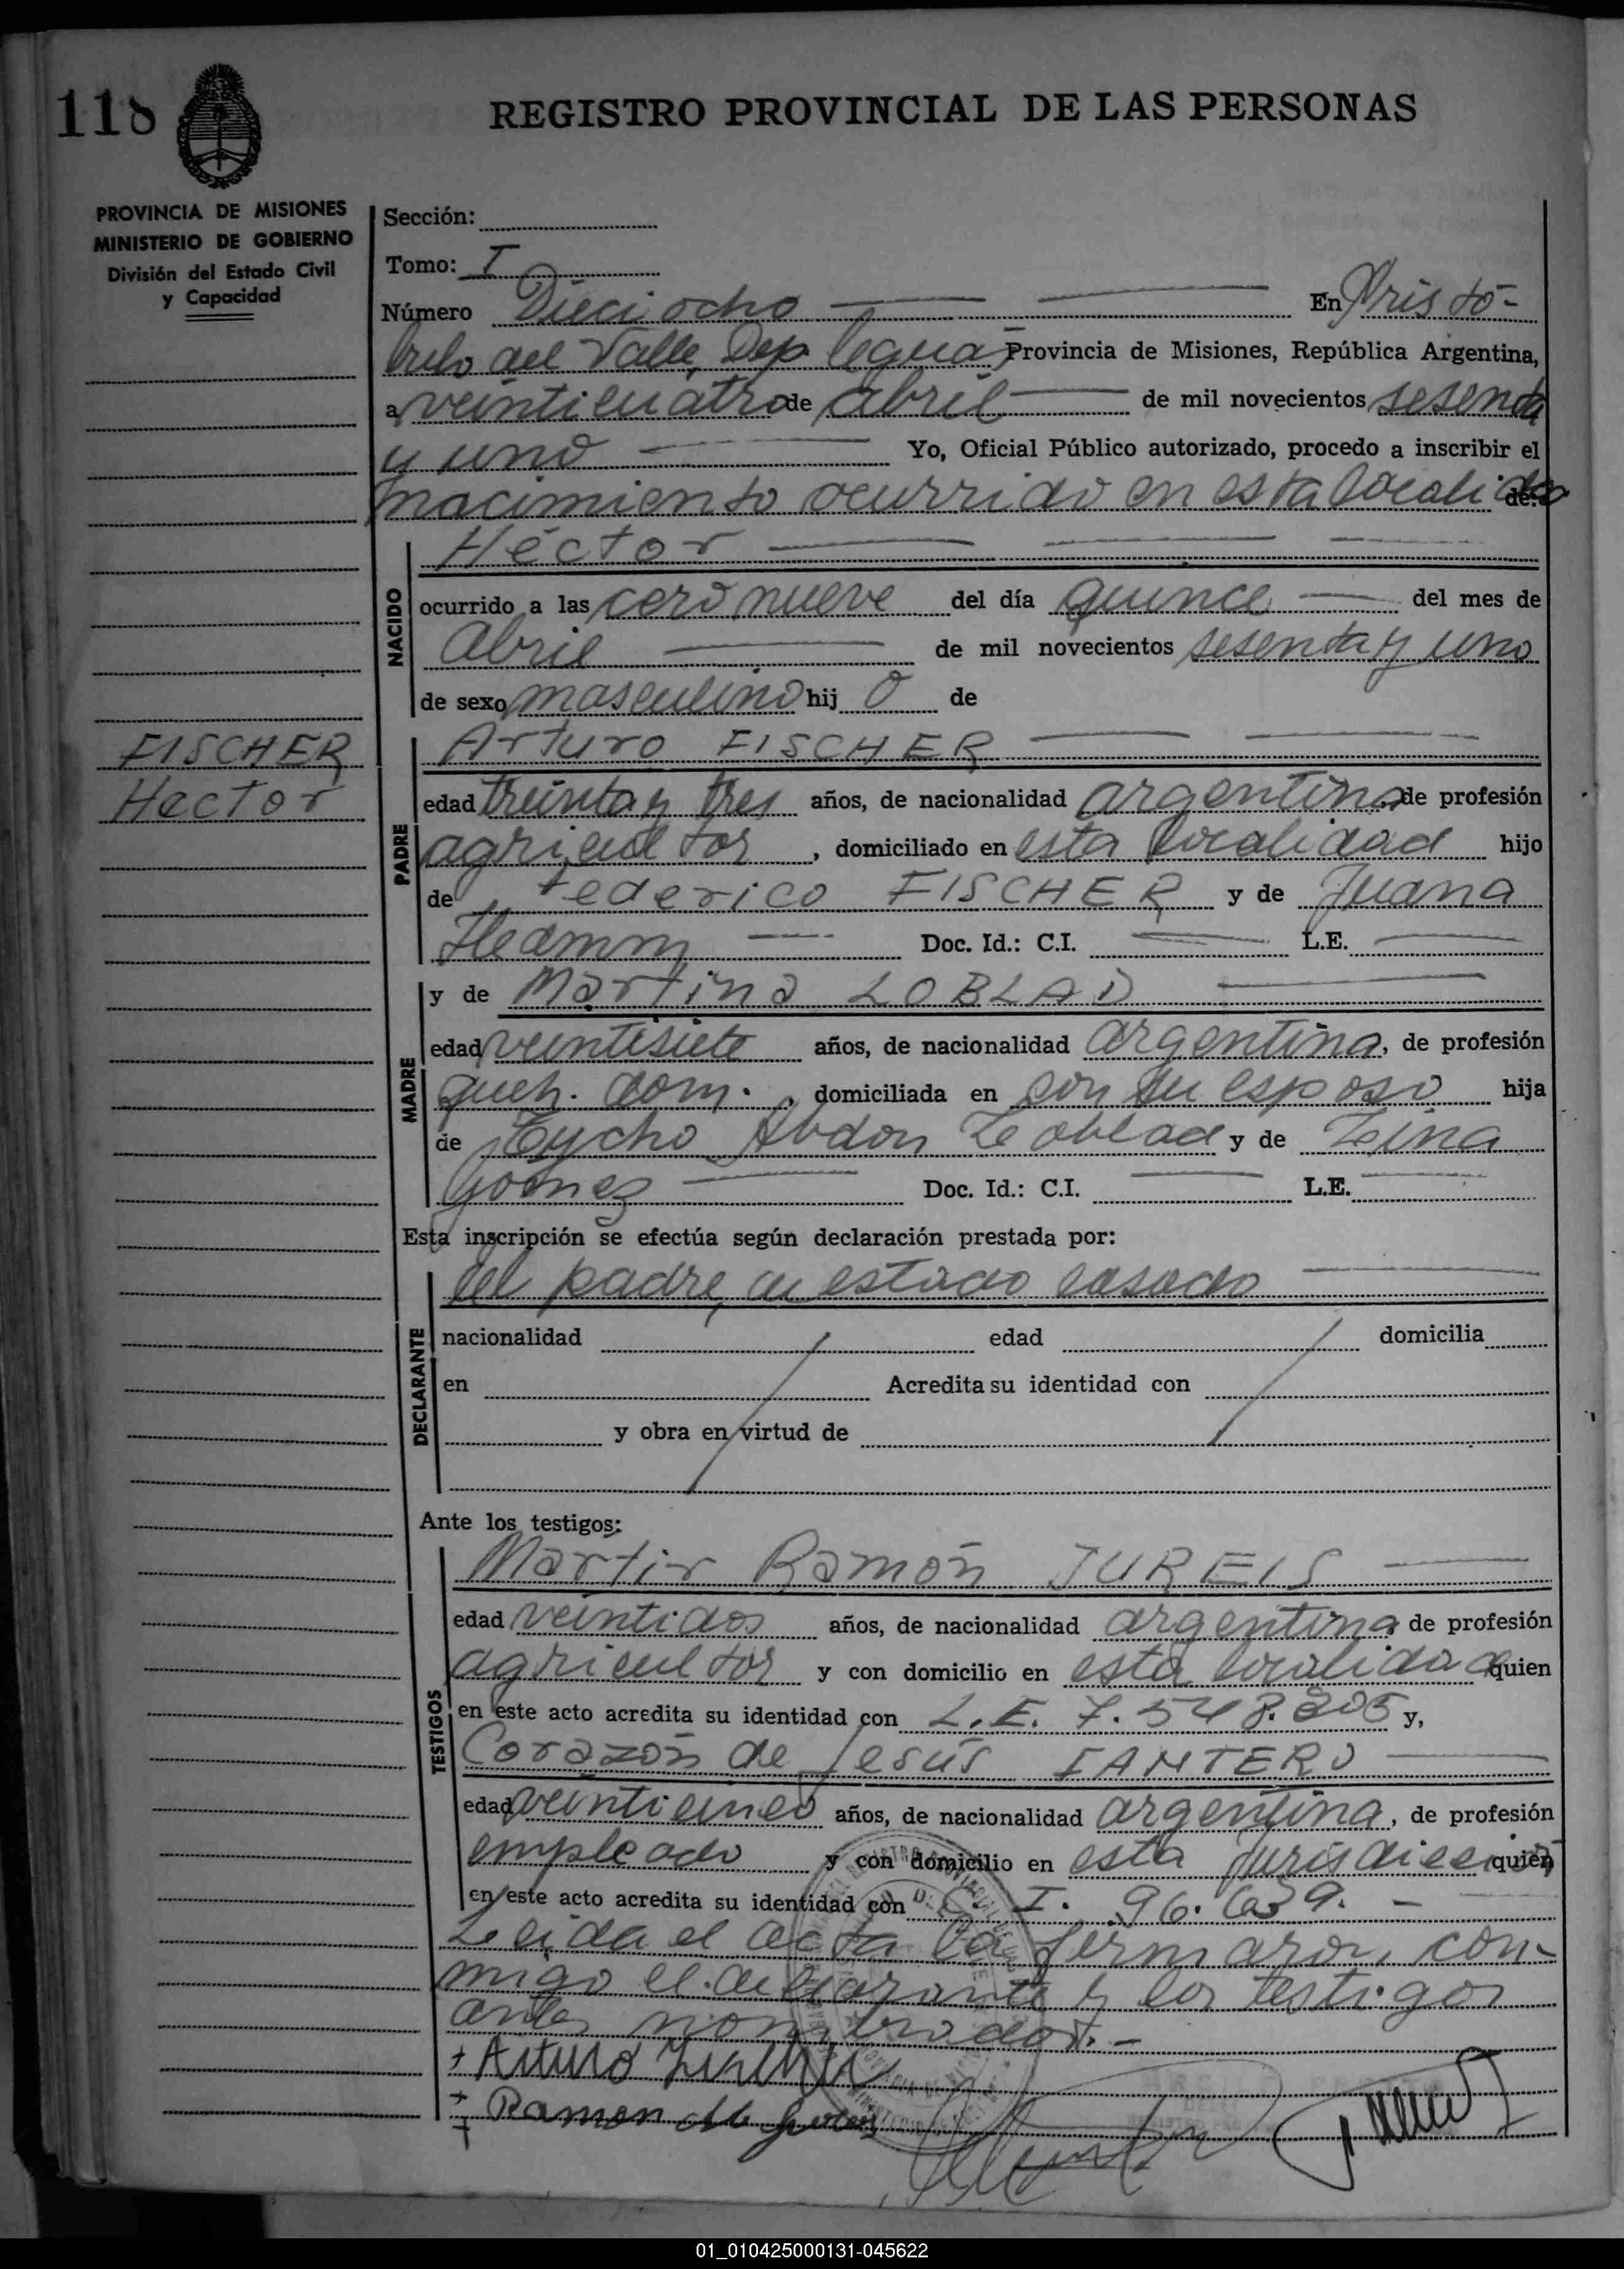 118
REGISTRO PROVINCIAL DE LAS PERSONAS
PROVINCIA DE MISIONES
MINISTERIO DE GOBIERNO
División del Estado Civil
y Capacidad
Sección:
Tomo: I
Número Dieciocho En Aristó-
bulo del Valle, Dep. Provincia de Misiones, República Argentina,
a veinticuatro de abril de mil novecientos sesenta
y uno Yo, Oficial Público autorizado, procedo a inscribir el
nacimiento ocurrido en esta localidad de:
NACIDO
Héctor
ocurrido a las cero nueve del día quince del mes de
Abril de mil novecientos sesenta y uno
de sexo masculino hij o de
FISCHER
Hector
PADRE
Arturo FISCHER
edad treinta y tres años, de nacionalidad argentina, de profesión
agricultor, domiciliado en esta localidad hijo
de Federico FISCHER y de Juana
Hamm Doc. Id.: C.I. L.E.
MADRE
y de Martina LOBLAD
edad veintisiete años, de nacionalidad argentina, de profesión
queh. dom., domiciliada en con su esposo hija
de Tycho Abdon y de Lina
Gomez Doc. Id.: C.I. L.E.
Esta inscripción se efectúa según declaración prestada por:
DECLARANTE
del padre, de estado casado
nacionalidad edad domicilia
en Acredita su identidad con
y obra en virtud de
Ante los testigos:
TESTIGOS
Martir Ramón JUREIS
edad veintidos años, de nacionalidad argentina, de profesión
agricultor y con domicilio en esta localidad quien
en este acto acredita su identidad con L.E. 7.548.805 y,
Corazón de Jesús
edad veinticinco años, de nacionalidad argentina, de profesión
empleado y con domicilio en esta jurisdicción quien
en este acto acredita su identidad con C. I. 96.639.-
Leida el acta la firmaron con-
migo el declarante y los testigos
antes nombrados.-
+ Arturo
+ Ramon
01_010425000131-045622